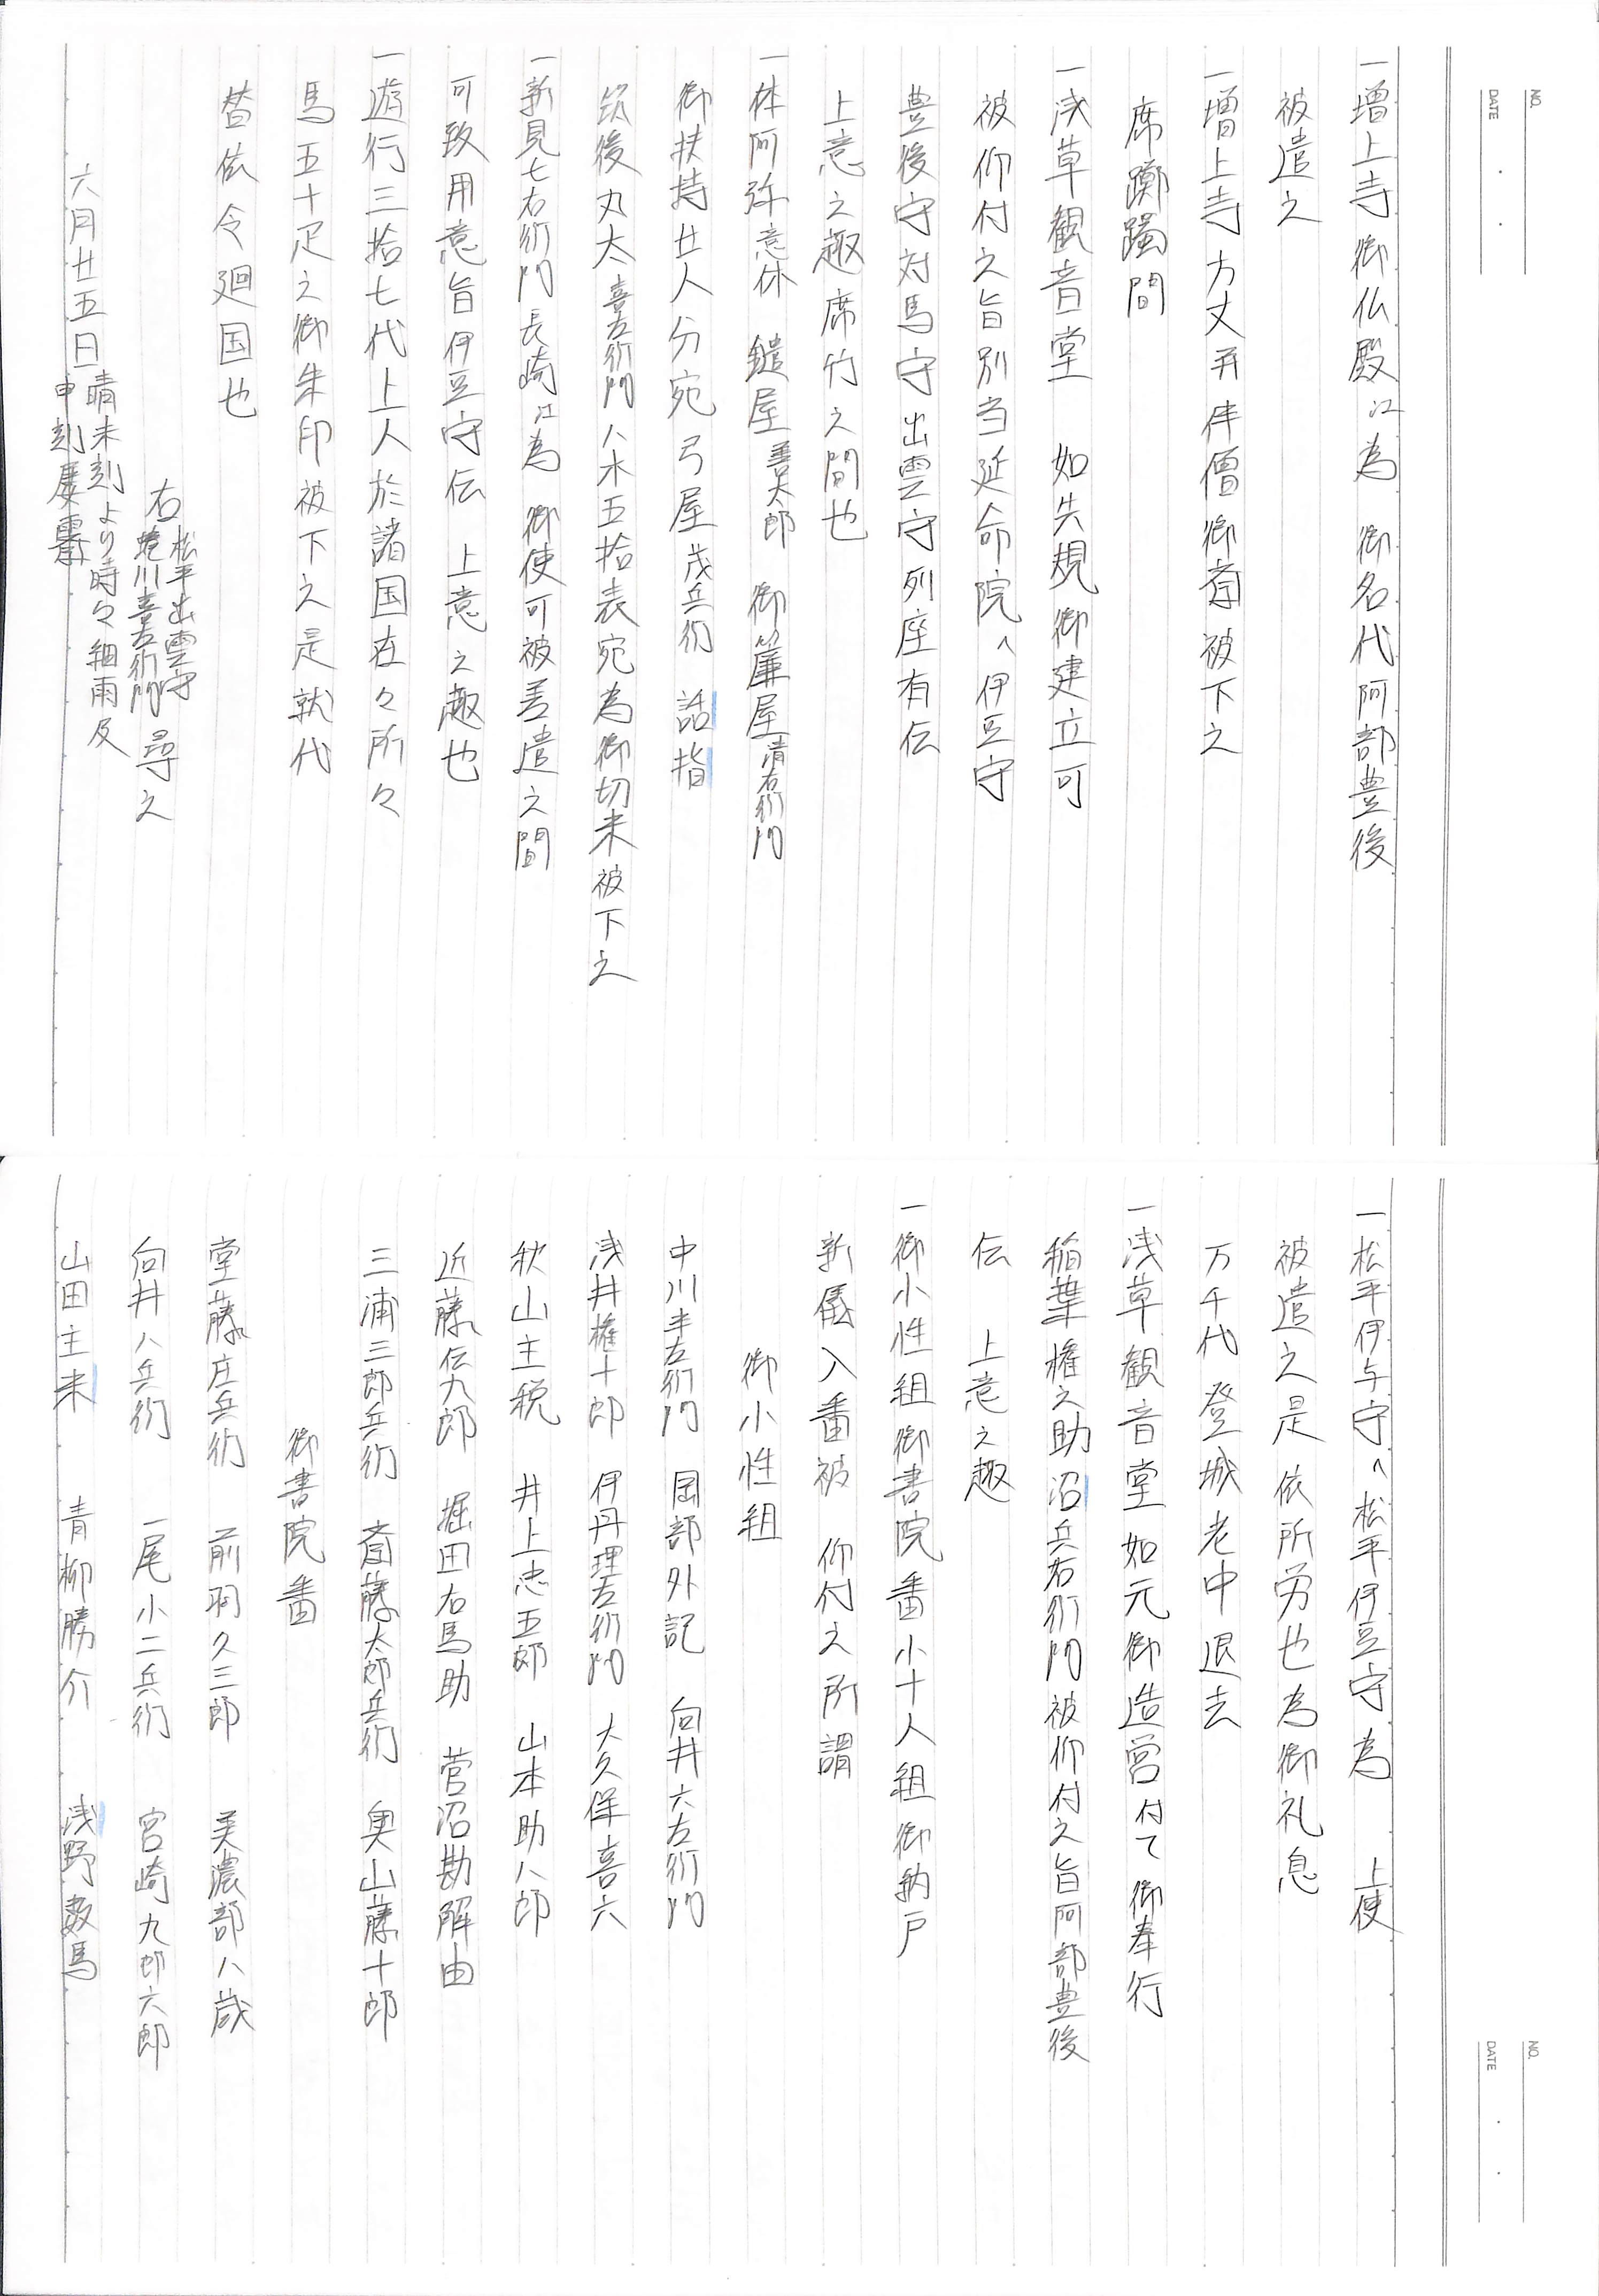 NO.
DATE
一増上寺御仏殿江為 御名代阿部豊後
被遣之
一増上寺方丈并伴僧御斎被下之
席躑躅間
一浅草観音堂 如先規御建立可
被仰付之旨別当延命院へ伊豆守
豊後守対馬守出雲守列座有伝
上意之趣席竹之間也
一休阿弥意休 鑓屋善太郎 御簾屋清右衛門
御扶持廿人分宛弓屋茂兵衛 話指
筑後丸太喜左衛門八木五拾表宛為御切米被下之
一新見七右衛門長崎江為 御使可被差遣之間
可致用意旨伊豆守伝 上意之趣也
一遊行三拾七代上人於諸国在々所々
馬五十疋之御朱印被下之是就代
替依令廻国也
右松平出雲守蜷川喜左衛門尋之
六月廿五日晴未刻より時々細雨及申刻屡
NO.
DATE
一松平伊与守へ松平伊豆守為 上使
被遣之是依所労也為御礼息
万千代登城老中退去
一浅草観音堂如元御造営付て御奉行
稲葉権之助沼兵右衛門被仰付之旨阿部豊後
伝 上意之趣
一御小性組御書院番小十人組御納戸
新儀入番被 仰付之所謂
御小性組
中川半左衛門 岡部外記 向井六左衛門
浅井権十郎 伊丹理左衛門 大久保喜六
秋山主税 井上忠五郎 山本助八郎
近藤伝九郎 堀田右馬助 菅沼勘解由
三浦三郎兵衛 斎藤太郎兵衛 奥山藤十郎
御書院番
堂藤庄兵衛 前羽久三郎 美濃部八蔵
向井八兵衛 一尾小二兵衛 宮崎九郎六郎
山田主来 青柳勝介 浅野数馬